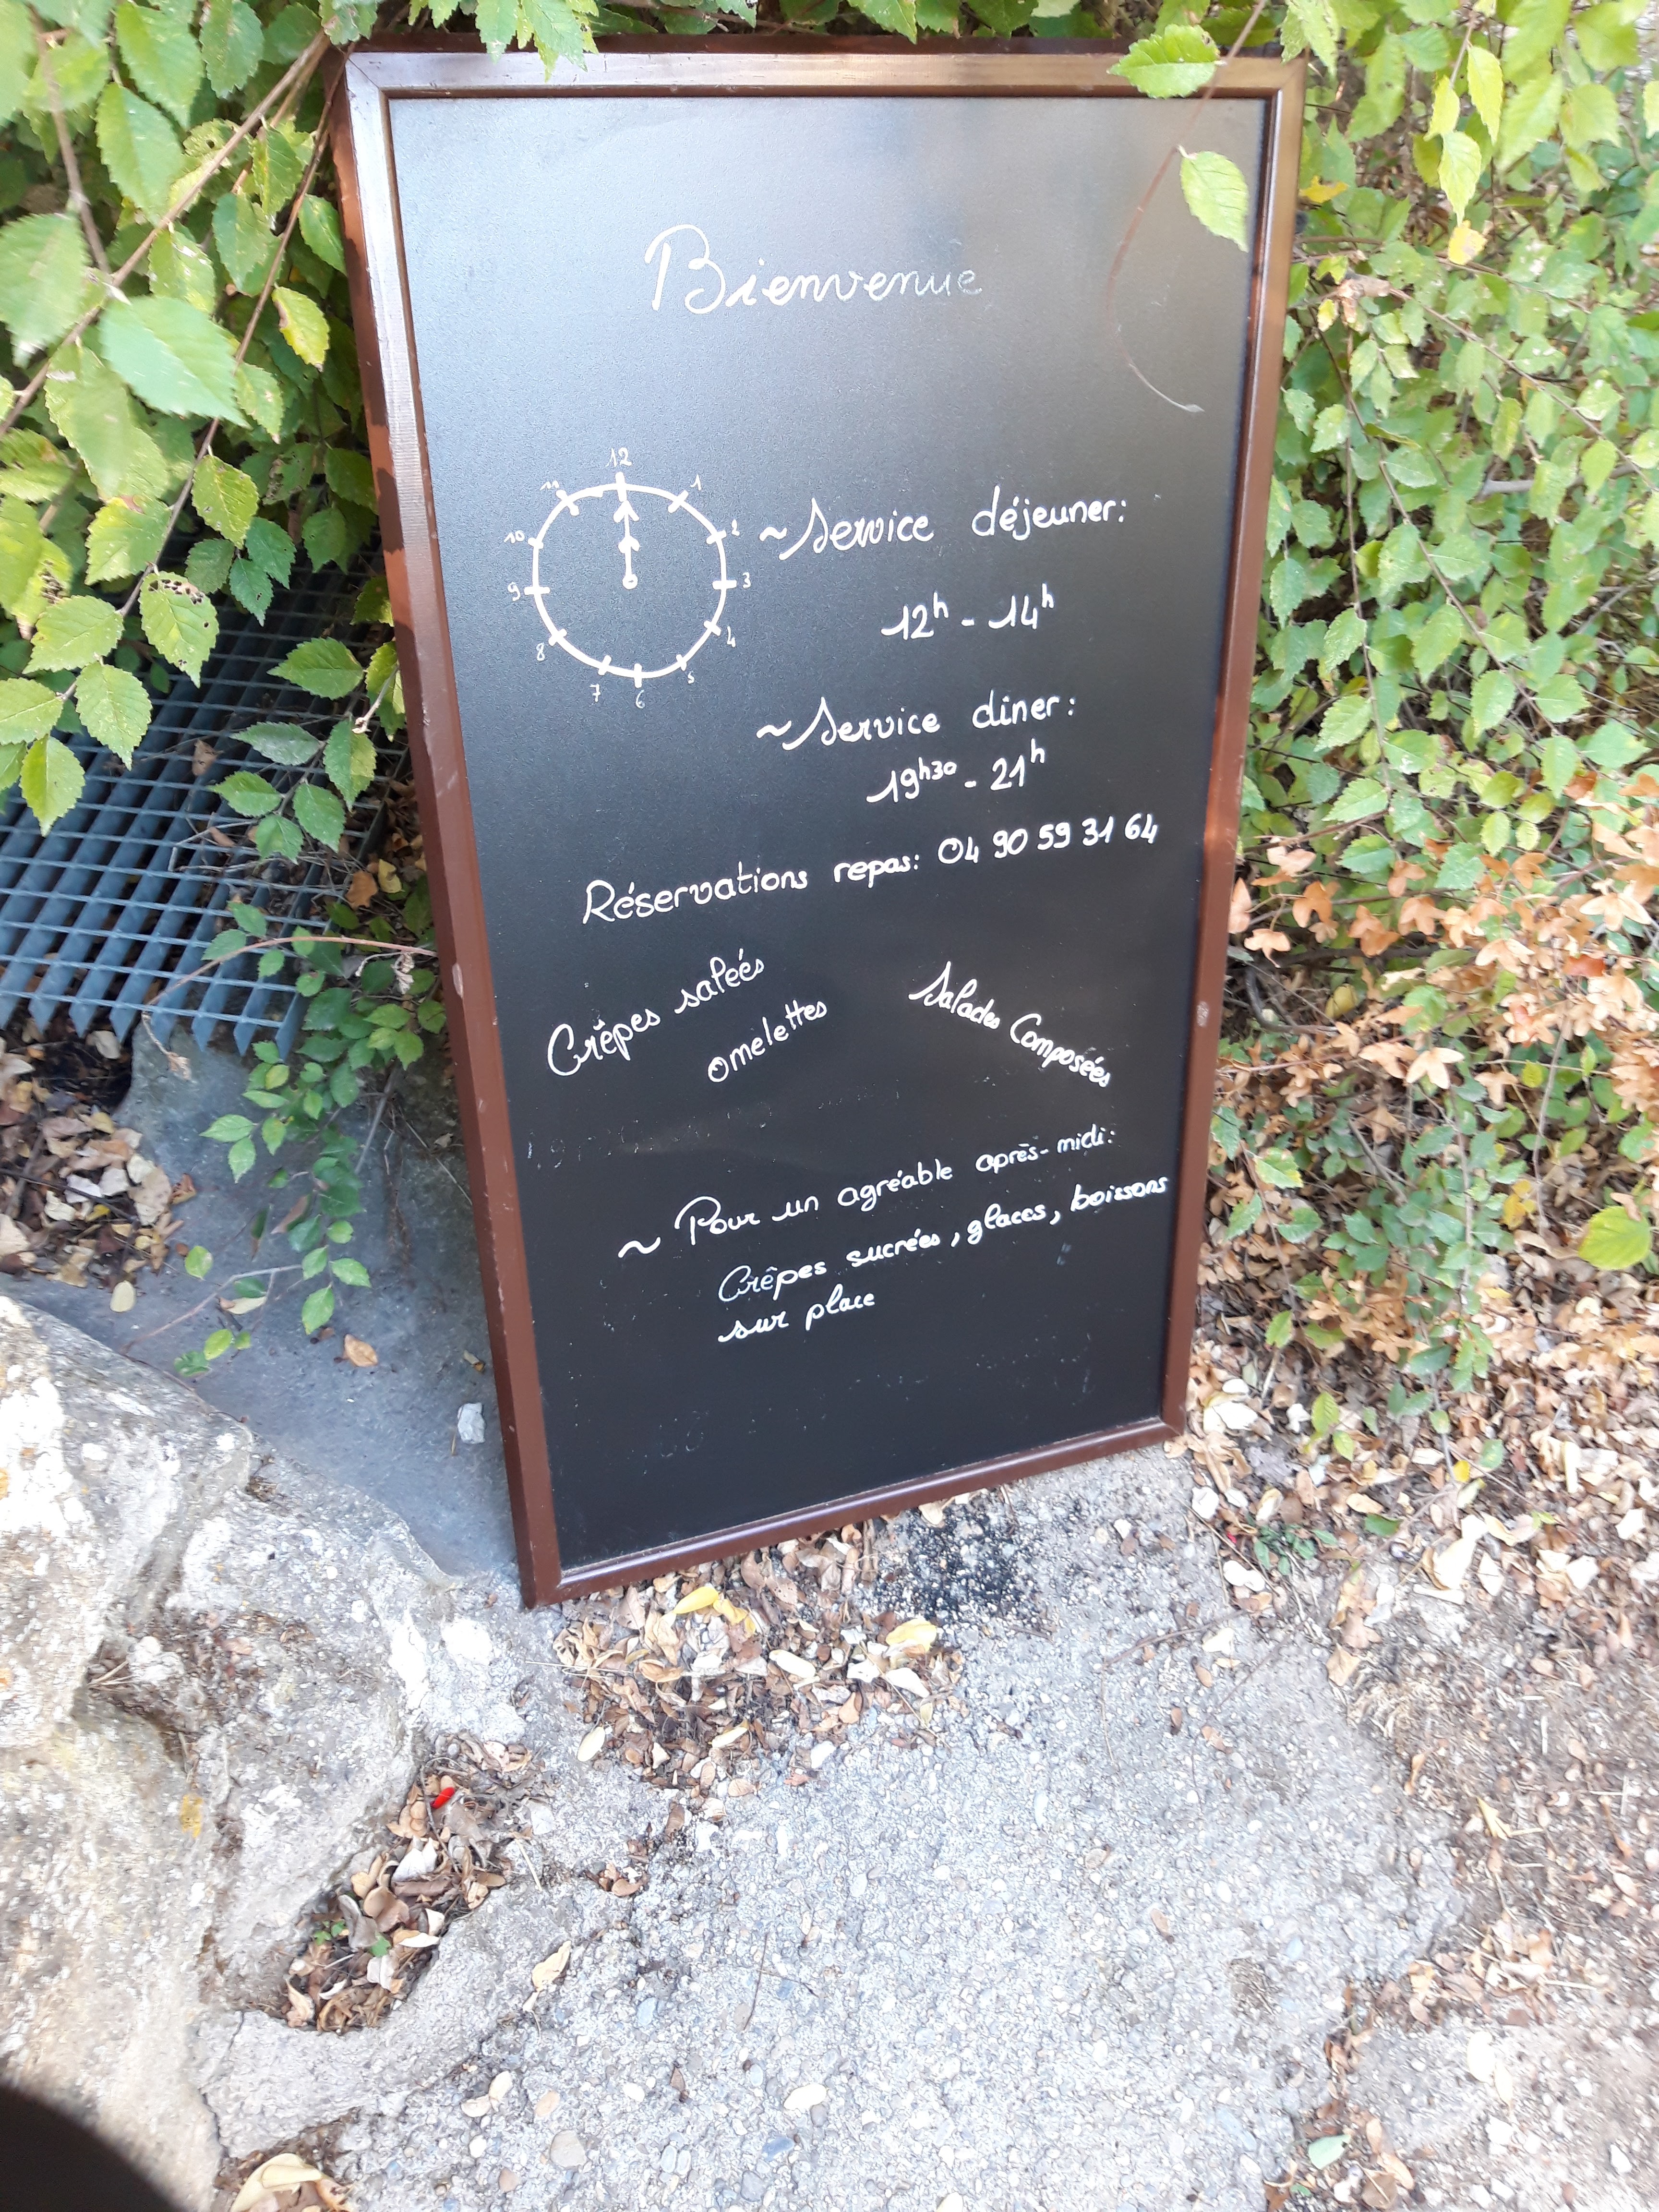 Bienvenue
12
11
1
10
2
9
3
8
4
7
5
6
~ Service déjeuner:
12h - 14h
~ Service diner:
19h30 - 21h
Réservations repas: 04 90 59 31 64
Crêpes salées
omelettes
Salades Composées
~ Pour un agréable après-midi:
Crêpes sucrées, glaces, boissons
sur place